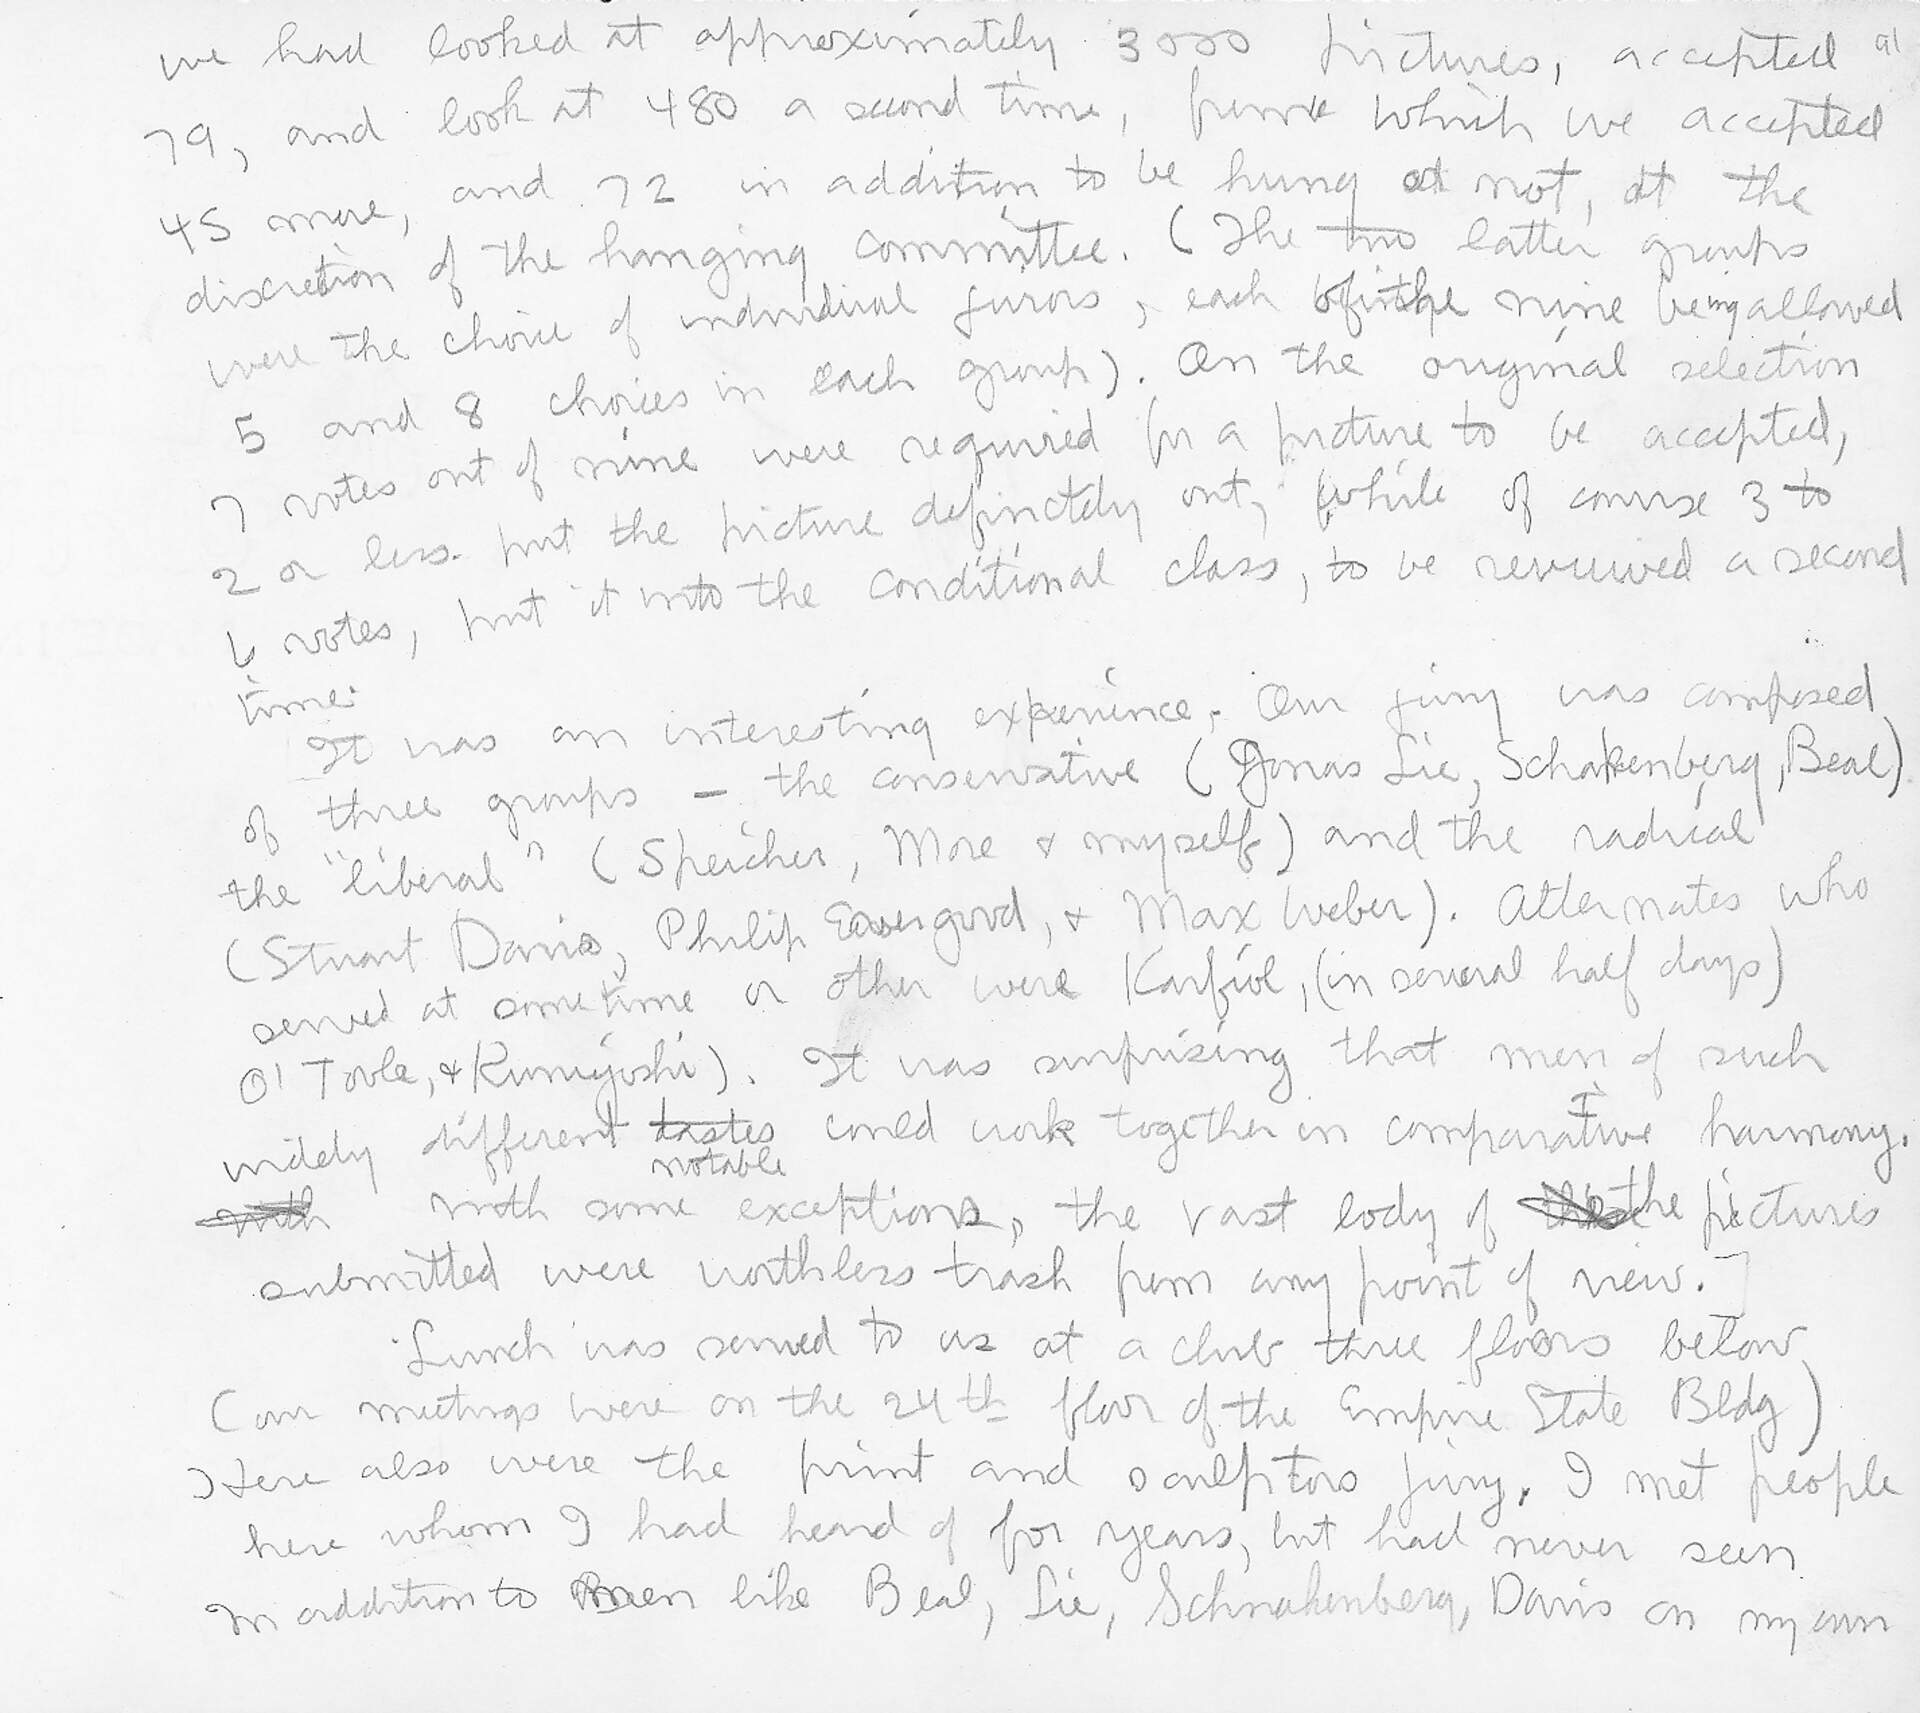 we had looked at approximately 3000 pictures, accepted 91
79, and look at 480 a second time, from which we accepted
45 more, and 72 in addition to be hung or not, at the
discretion of the hanging committee. (The two latter groups
were the choice of individual jurors, each of the nine being allowed
5 and 8 choices in each group). On the original selection
7 votes out of nine were required for a picture to be accepted,
2 or less put the picture definitely out, while of course 3 to
6 votes, put it into the conditional class, to be reviewed a second
time.
It was an interesting experience. Our jury was composed
of three groups – the conservative (Jonas Lie, Schakenberg, Beal)
the "liberal" (Speicher, More & myself) and the radical
(Stuart Davis, Philip Evergood, & Max Weber). Alternates who
served at sometime or other were Karfiol, (in several half days)
O'Toole, & Kuniyoshi). It was surprising that men of such
widely different tastes could work together in comparative harmony.
with with some notable exceptions, the vast body of the pictures
submitted were worthless trash from any point of view.]
Lunch was served to us at a club three floors below
(our meetings were on the 24th floor of the Empire State Bldg)
Here also were the print and sculptors jury. I met people
here whom I had heard of for years, but had never seen
In addition to men like Beal, Lie, Schnakenberg, Davis on my own